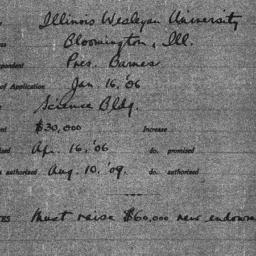 Illinois Wesleyan University
Bloomington, Ill.
Pres. Barnes
of Application Jan. 16, '06
Science Bldg.
$30,000 Increase
Apr. 16, '06 do. promised
authorized Aug. 10, '09. do. authorized
Must raise $60,000 new endowm